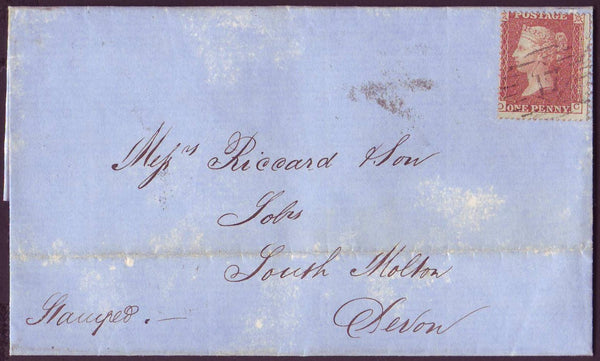 POSTAGE
ONE PENNY.
Messrs Riccard & Son
Solrs
South Molton
Devon
Stamped. —